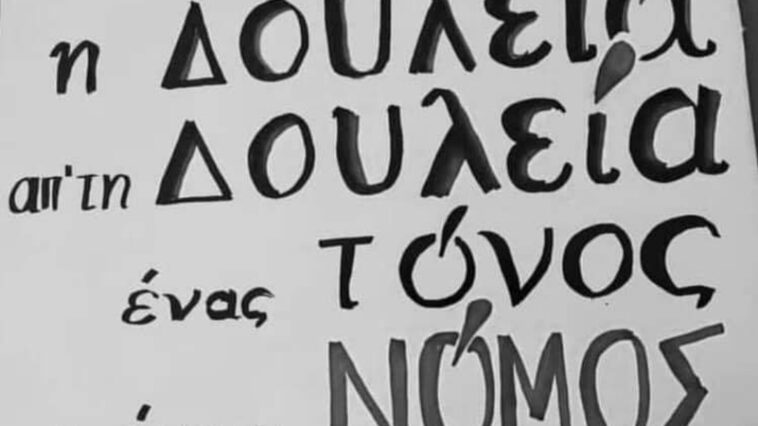 η Δουλειά
απ' τη Δουλεία
ένας τόνος
ΝΌΜΟΣ